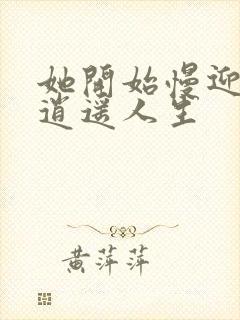 她開始慢迎
逍遥人生
黄萍萍